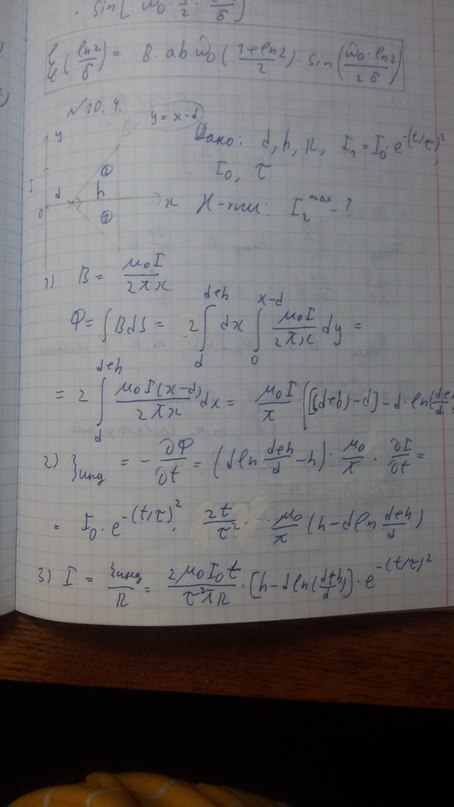 sin( ω₀ · 1/2 · /δ )
ξ (ln2/δ) = B·ab·ω₀ (1+ln2/2) · sin(ω₀·ln2/2δ)
№ 10.4.
y = x-d
y
I
d
h
①
②
0
x
Дано: d, h, R, I₁ = I₀·e^-(t/τ)²,
I₀, τ
Н-ти: I₂^max - ?
1) B = μ₀I/2πx
Ф = ∫BdS = 2 ∫_d^d+h dx ∫_0^x-d μ₀I/2πx dy =
= 2 ∫_d^d+h μ₀I(x-d)/2πx dx = μ₀I/π ([(d+h)-d] - d·ln(d+h/d
2) ξинд = - ∂Ф/∂t = (d ln d+h/d - h) · μ₀/π · ∂I/∂t =
= I₀·e^-(t/τ)² · 2t/τ² · μ₀/π (h - d ln d+h/d)
3) I = ξинд/R = 2μ₀I₀t/τ²πR · [h - d ln(d+h/d)] · e^-(t/τ)²